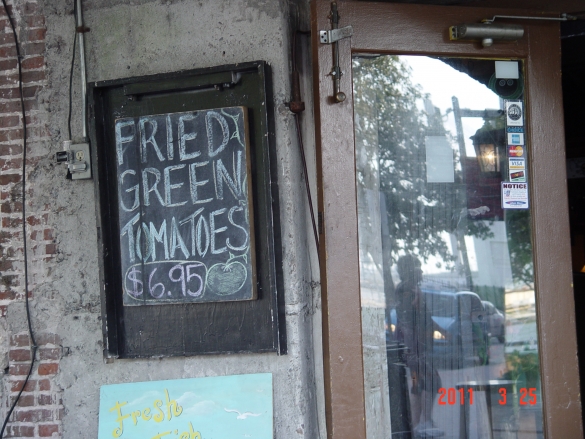 FRIED
GREEN
TOMATOES
$6.95
Fresh
VISA
NOTICE
2011 3 25